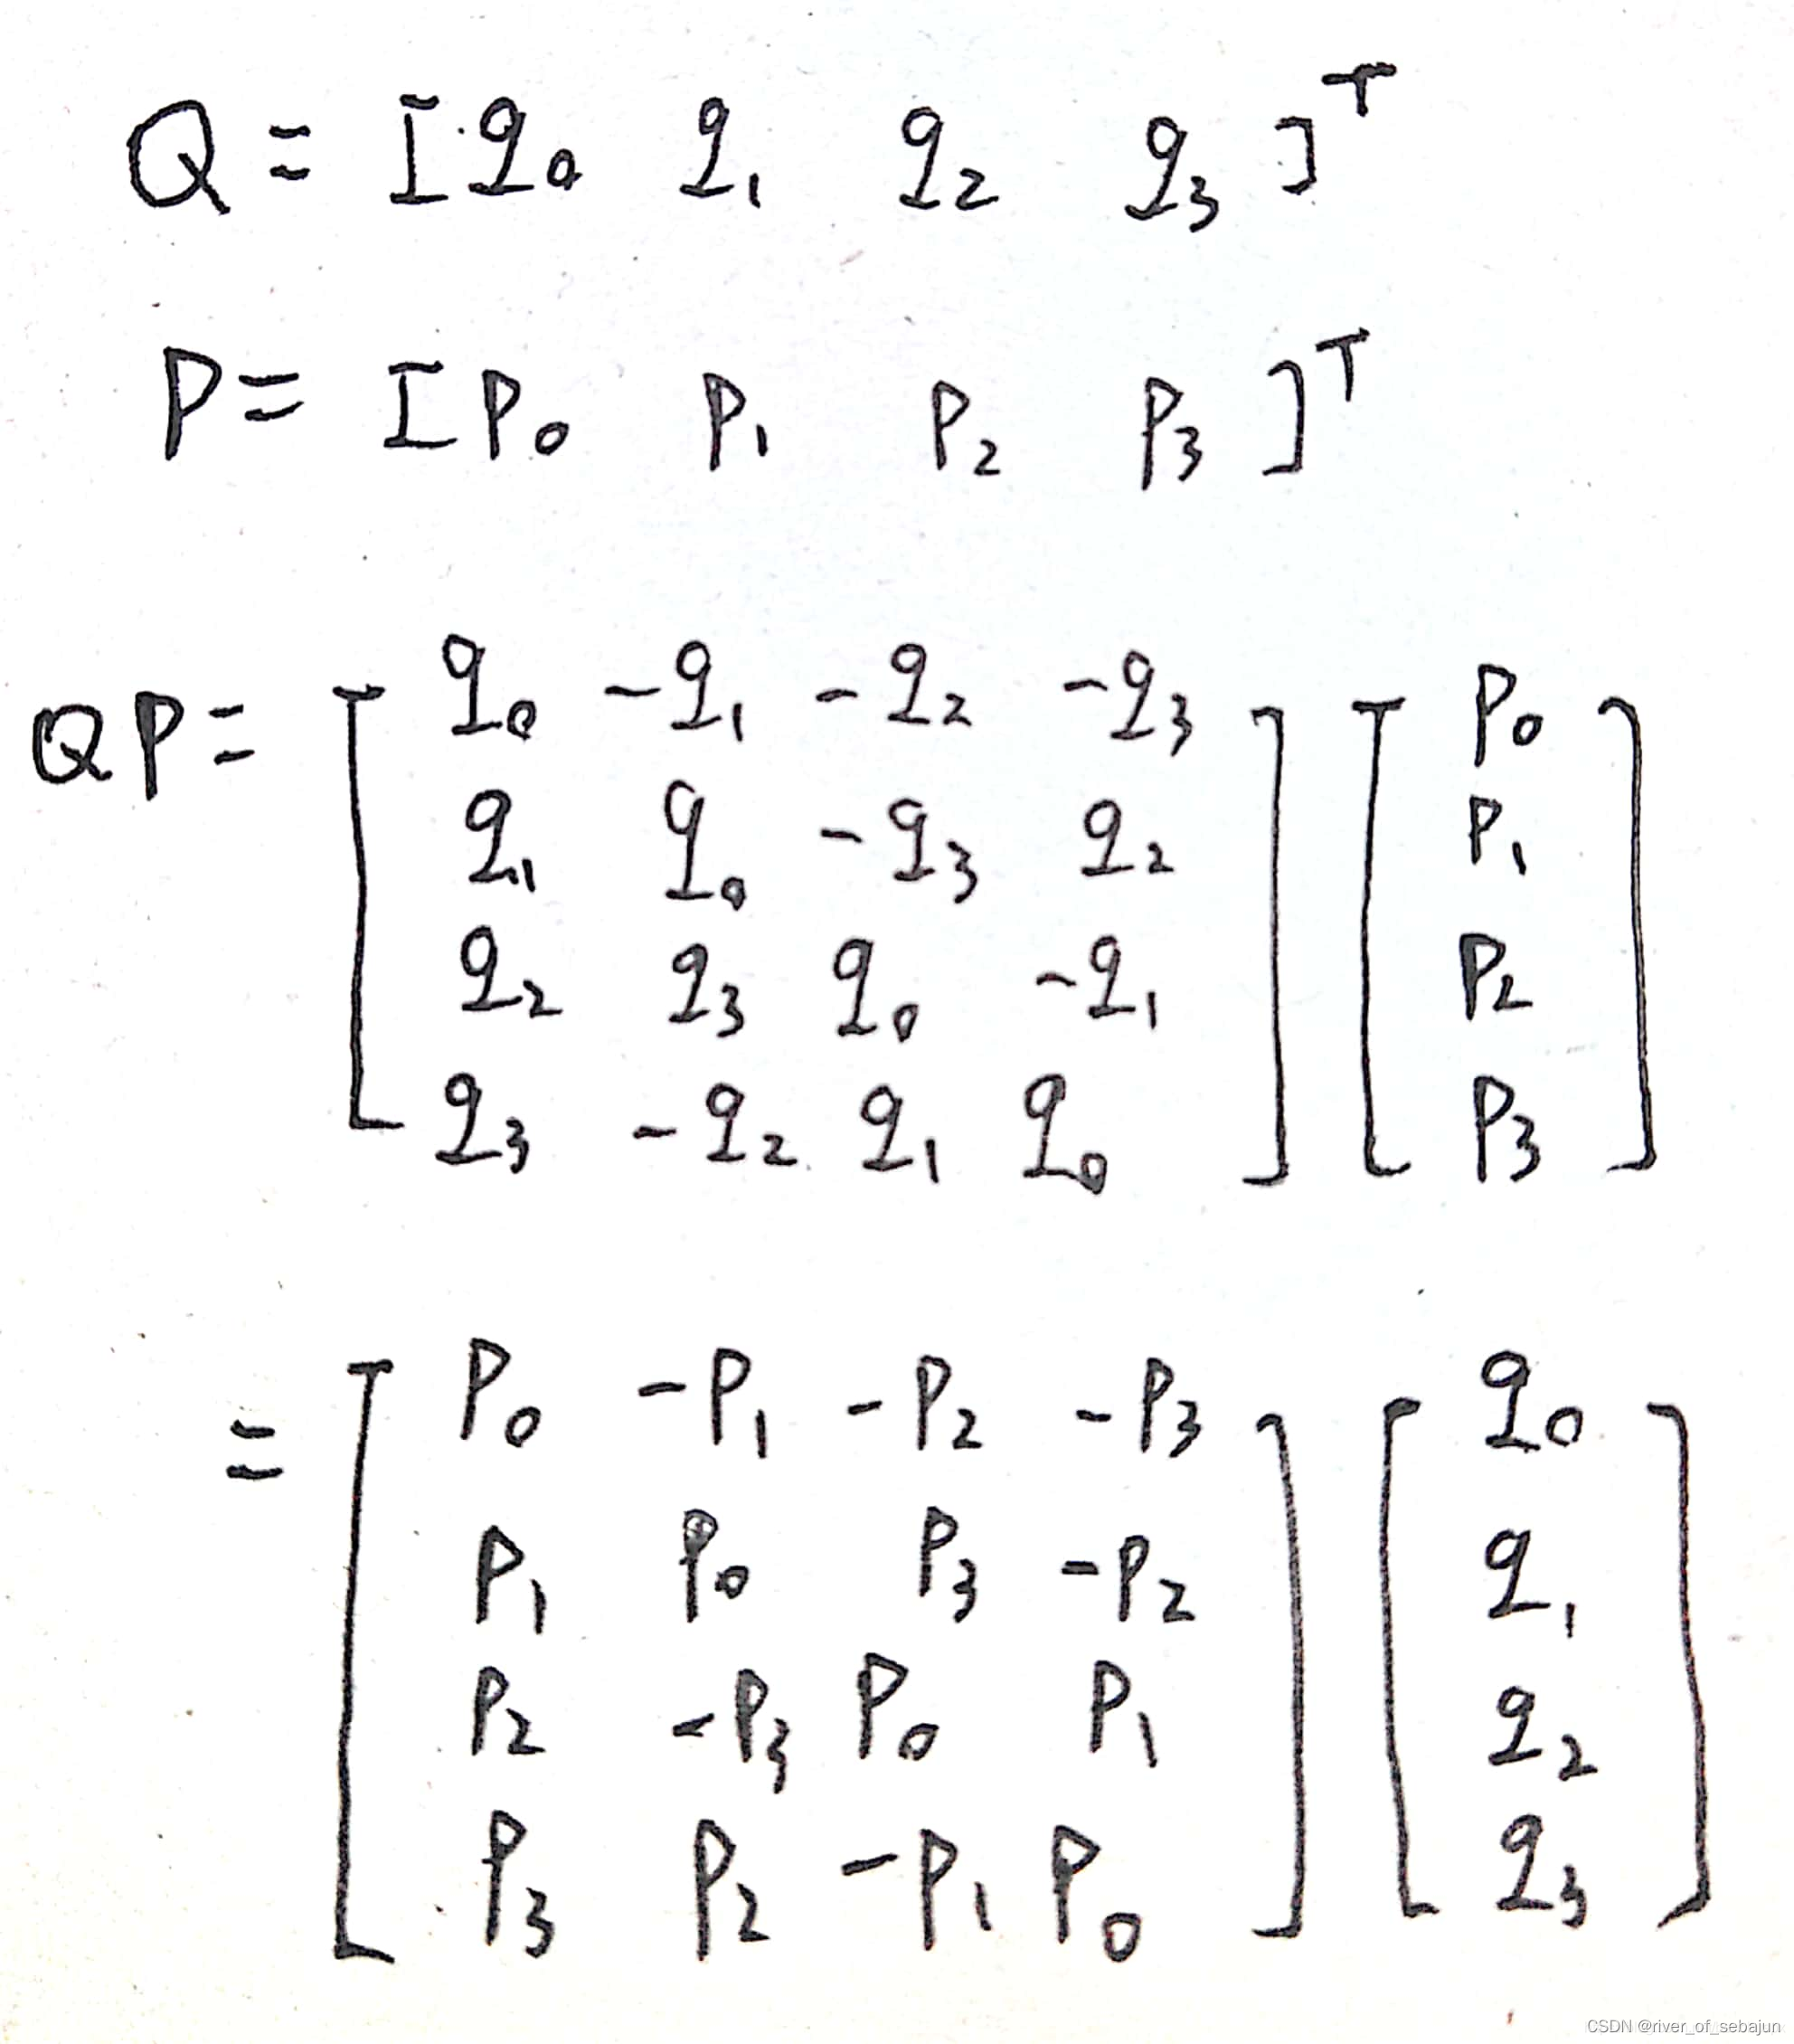 Q = [q₀ q₁ q₂ q₃]ᵀ
P = [P₀ P₁ P₂ P₃]ᵀ
QP = [q₀ -q₁ -q₂ -q₃] [P₀]
[q₁ q₀ -q₃ q₂] [P₁]
[q₂ q₃ q₀ -q₁] [P₂]
[q₃ -q₂ q₁ q₀] [P₃]
= [P₀ -P₁ -P₂ -P₃] [q₀]
[P₁ P₀ P₃ -P₂] [q₁]
[P₂ -P₃ P₀ P₁] [q₂]
[P₃ P₂ -P₁ P₀] [q₃]
CSDN @river_of_sebajun